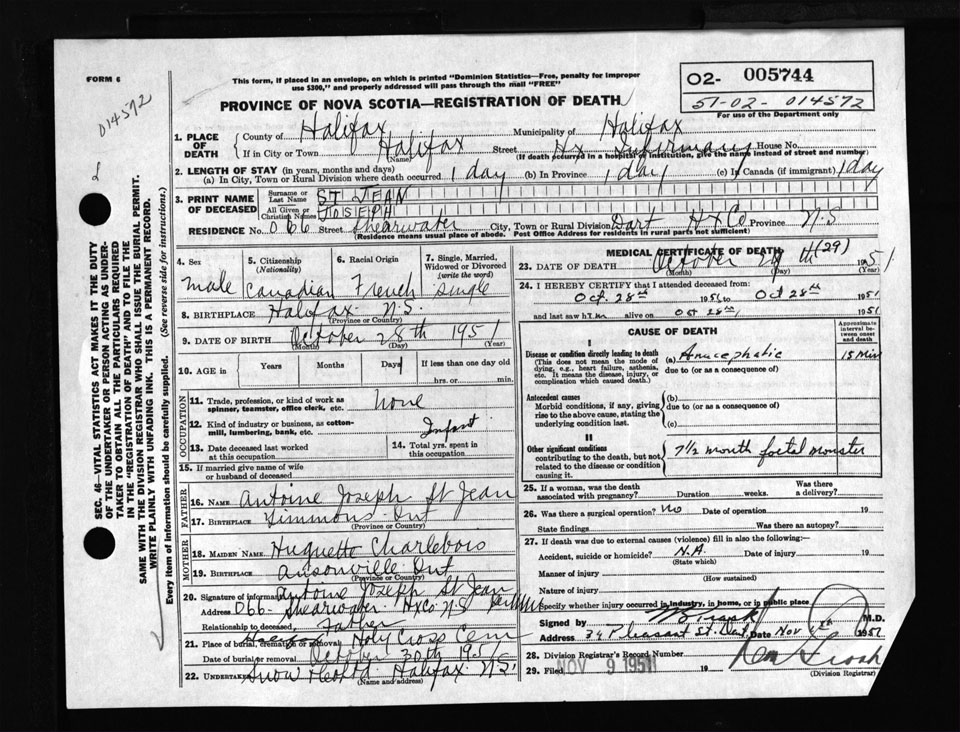 FORM 6
014572
This form, if placed in an envelope, on which is printed "Dominion Statistics—Free, penalty for improper
use $300," and properly addressed will pass through the mail "FREE"
PROVINCE OF NOVA SCOTIA—REGISTRATION OF DEATH
02- 005744
51-02- 014572
For use of the Department only
SEC. 46- VITAL STATISTICS ACT MAKES IT THE DUTY
OF THE UNDERTAKER OR PERSON ACTING AS UNDER-
TAKER TO OBTAIN ALL THE PARTICULARS REQUIRED
IN THE "REGISTRATION OF DEATH" AND TO FILE THE
SAME WITH THE DIVISION REGISTRAR WHO SHALL ISSUE THE BURIAL PERMIT.
WRITE PLAINLY WITH UNFADING INK. THIS IS A PERMANENT RECORD.
Every item of information should be carefully supplied. (See reverse side for instructions.)
1. PLACE OF DEATH County of Halifax Municipality of Halifax
If in City or Town Halifax Street Hx Infirmary House No.
(Name) (If death occurred in a hospital or institution, give the name instead of street and number)
2. LENGTH OF STAY (in years, months and days)
(a) In City, Town or Rural Division where death occurred 1 day (b) In Province 1 day (c) In Canada (if immigrant) 1 day
3. PRINT NAME OF DECEASED Surname or Last Name ST JEAN
All Given or Christian Names JOSEPH
RESIDENCE No. 066 Street Shearwater City, Town or Rural Division Dart Hx Co Province N.S
(Residence means usual place of abode. Post Office Address for residents in rural parts not sufficient)
4. Sex male
5. Citizenship (Nationality) Canadian
6. Racial Origin French
7. Single, Married, Widowed or Divorced (write the word) Single
8. BIRTHPLACE Halifax N.S.
(Province or Country)
9. DATE OF BIRTH October 28th 1951
(Month) (Day) (Year)
10. AGE IN Years Months Days 1 If less than one day old
hrs. or min.
OCCUPATION
11. Trade, profession, or kind of work as
spinner, teamster, office clerk, etc. none
12. Kind of industry or business, as cotton-
mill, lumbering, bank, etc. Infant
13. Date deceased last worked at this occupation
14. Total yrs. spent in this occupation
15. If married give name of wife
or husband of deceased
FATHER
16. NAME Antoine Joseph St Jean
17. BIRTHPLACE Timmons Ont
(Province or Country)
MOTHER
18. MAIDEN NAME Huguette Charlebois
19. BIRTHPLACE Ansonville Ont
(Province or Country)
20. Signature of informant Antoine Joseph St Jean
Address 066- Shearwater Hx Co N.S
Relationship to deceased Father
21. Place of burial, cremation or removal Halifax Holy Cross Cem
Date of burial or removal October 30th 1951
22. UNDERTAKER Snow Halifax N.S.
(Name and address)
MEDICAL CERTIFICATE OF DEATH
23. DATE OF DEATH October th (29) 1951
(Month) (Day) (Year)
24. I HEREBY CERTIFY that I attended deceased from:
Oct. 28th 1951 to Oct 28th 1951
and last saw him alive on Oct 28th 1951
CAUSE OF DEATH
Approximate interval between onset and death
I
Disease or condition directly leading to death
(This does not mean the mode of
dying, e.g., heart failure, asthenia,
etc. It means the disease, injury, or
complication which caused death.)
(a) Anucephalic 15 Min
due to (or as a consequence of)
Antecedent causes
Morbid conditions, if any, giving
rise to the above cause, stating the
underlying condition last.
(b)
due to (or as a consequence of)
(c)
II
Other significant conditions
contributing to the death, but not
related to the disease or condition
causing it.
7½ month foetal monster
25. If a woman, was the death
associated with pregnancy? Duration weeks. Was there a delivery?
26. Was there surgical operation? No Date of operation 19
State findings Was there an autopsy?
27. If death was due to external causes (violence) fill in also the following:—
Accident, suicide or homicide? N.A. Date of injury 19
(State which)
Manner of injury
(How sustained)
Nature of injury
Specify whether injury occurred in industry, in home, or in public place
Signed by M.D.
Address 34 Pleasant St. Dart Date Nov 1951
28. Division Registrar's Record Number
29. Filed NOV 9 1951 19
(Division Registrar)